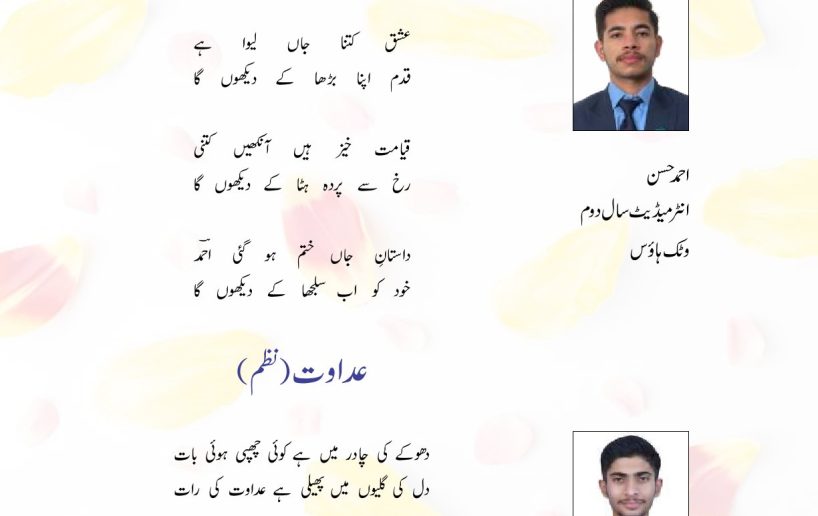 عشق کتنا جاں لیوا ہے
قدم اپنا بڑھا کے دیکھوں گا
قیامت خیز ہیں آنکھیں کتنی
رخ سے پردہ ہٹا کے دیکھوں گا
داستانِ جاں ختم ہو گئی احمدؔ
خود کو اب سلجھا کے دیکھوں گا
احمد حسن
انٹرمیڈیٹ سال دوم
وٹک ہاؤس
عداوت (نظم)
دھوکے کی چادر میں ہے کوئی چھپی ہوئی بات
دل کی گلیوں میں پھیلی ہے عداوت کی رات